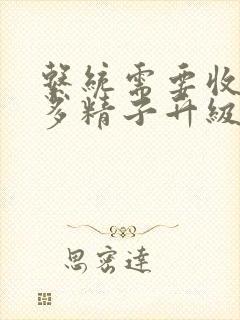 繫統需要收
多精子升級
思密達